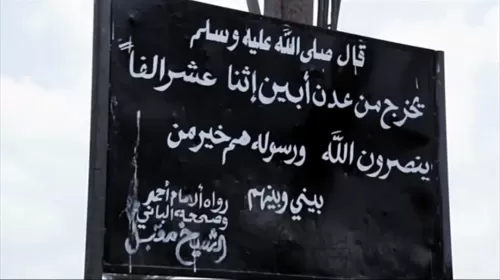 قال صلى الله عليه وسلم
يخرج من عدن أبين إثنا عشر الفاً
ينصرون الله ورسوله هم خير من
بيني وبينهم
رواه ألامام أحمد
وصححه الباني
الشيخ مقبل